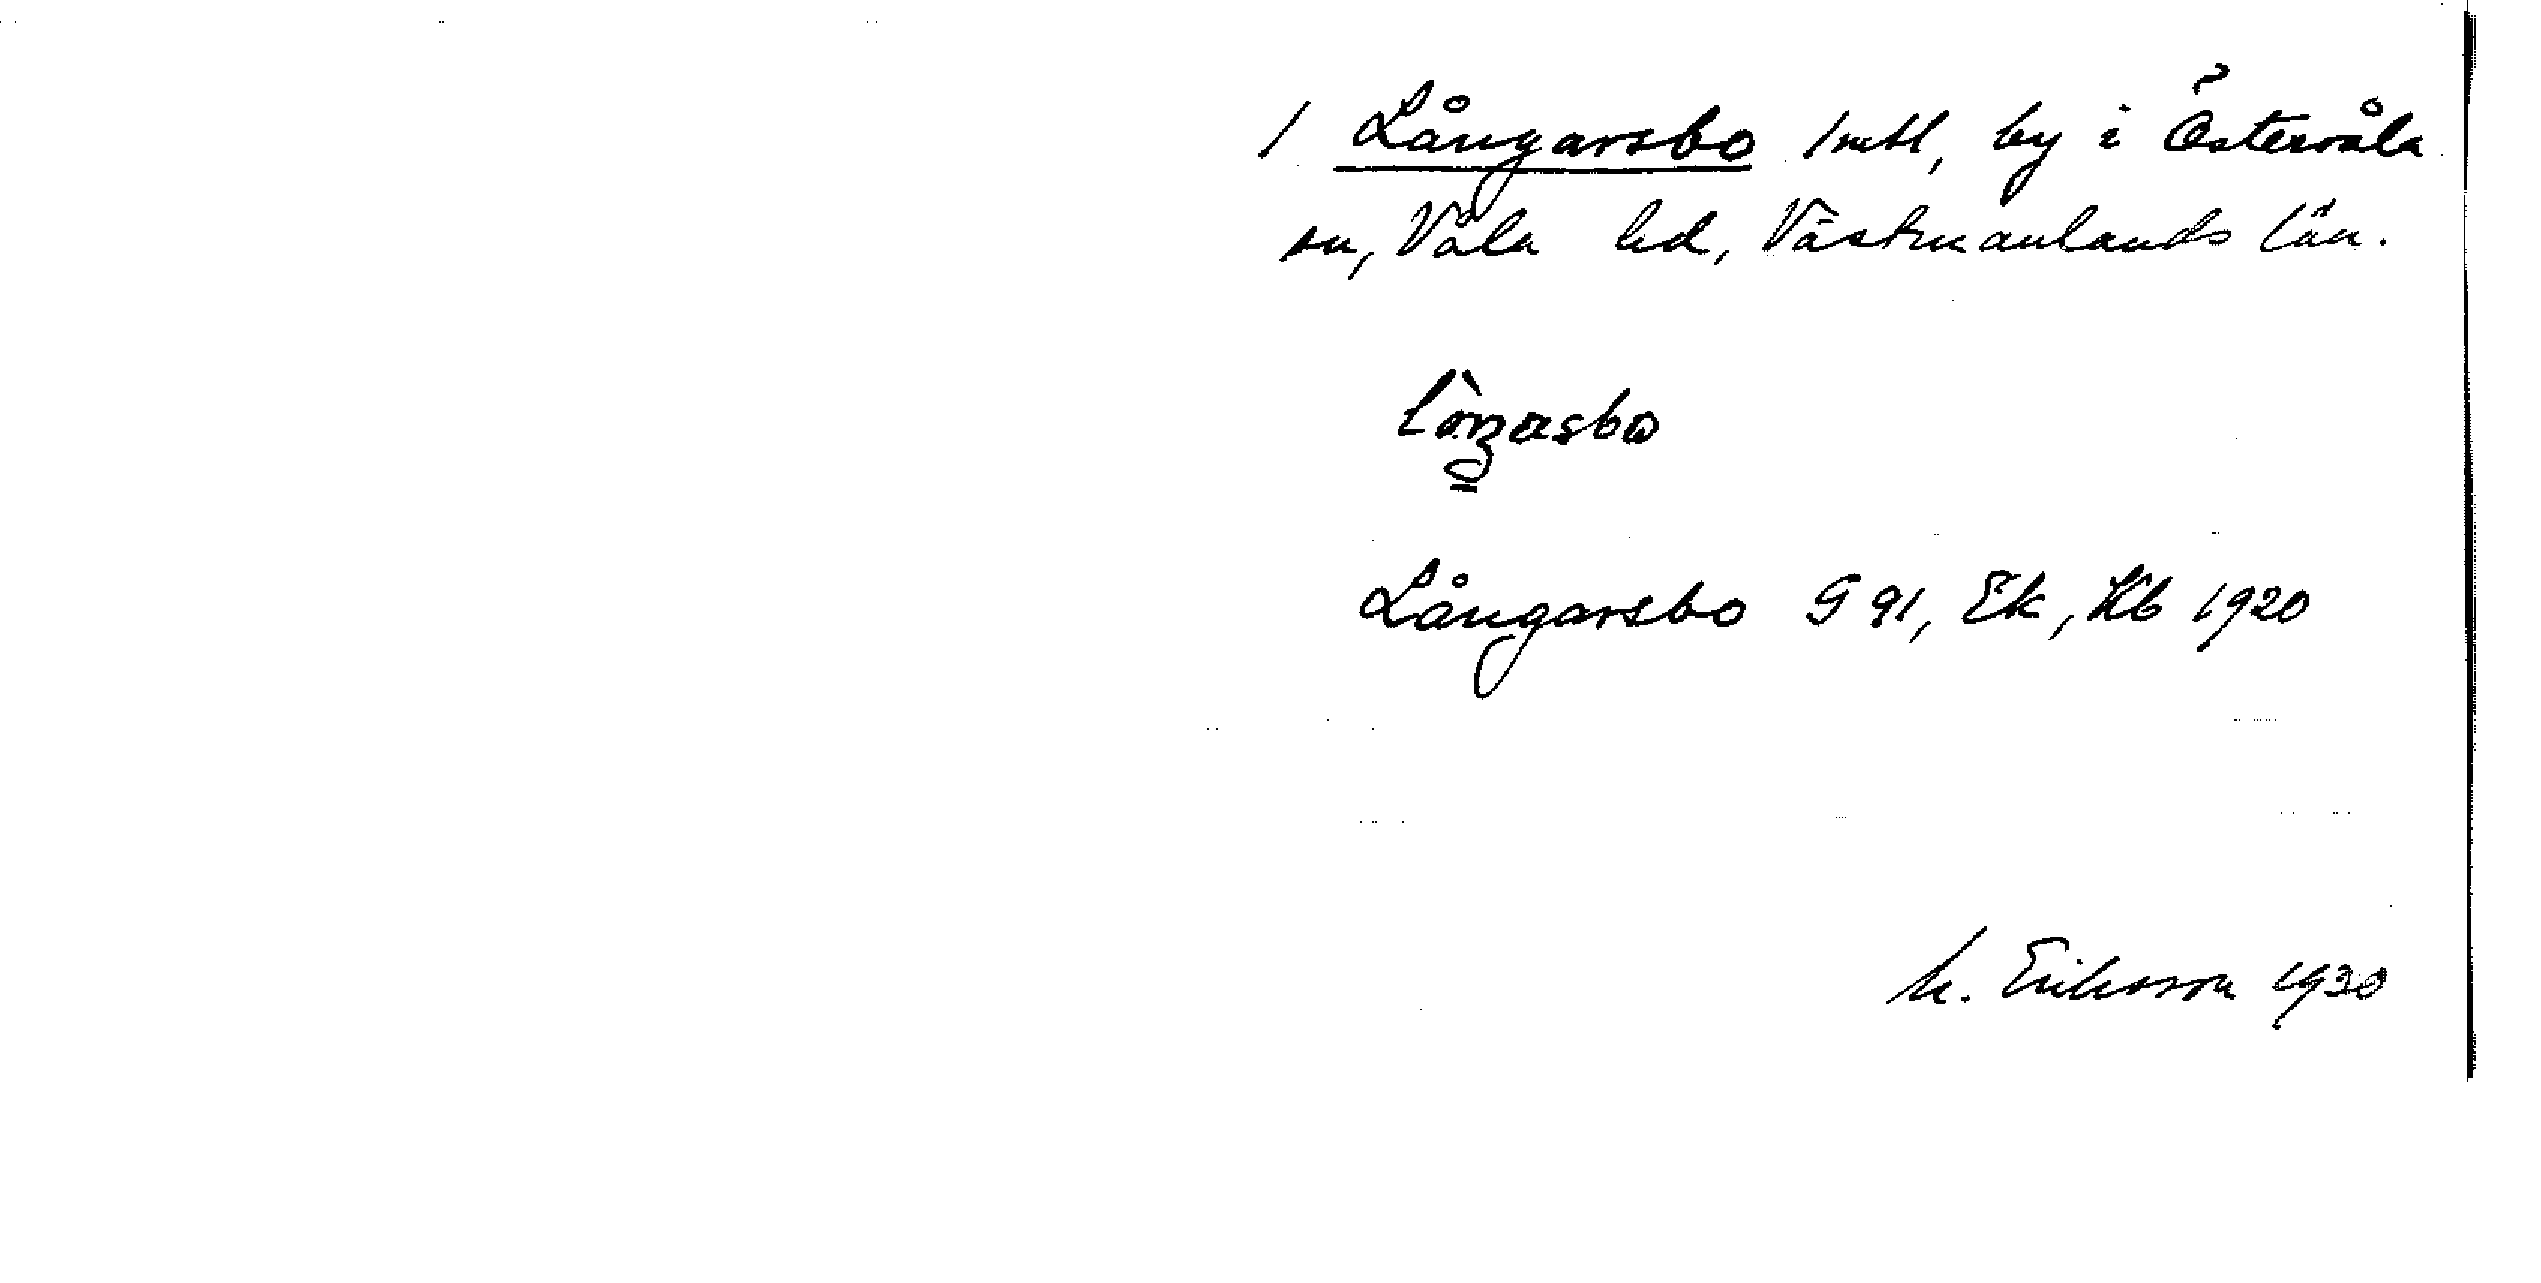 1 Långarsbo 1 mtl, by i Östervåla
sn, Våla hd, Västmanlands län.
Långarsbo G 91, Ek, Kb 1920
M. Eriksson 1930